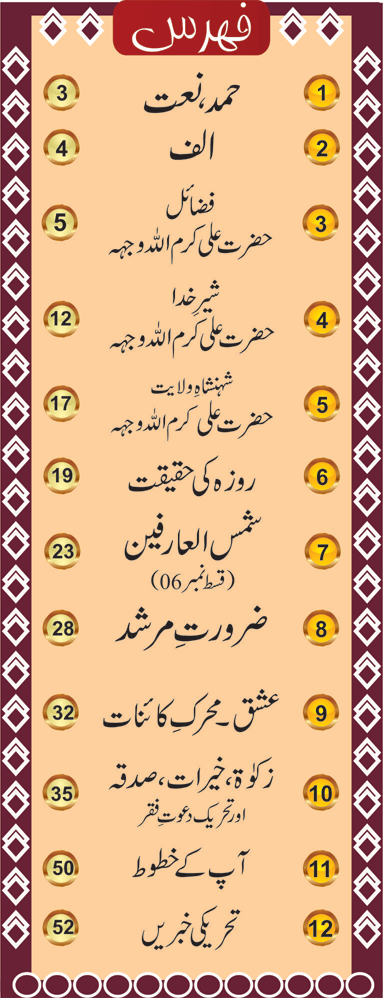 فہرس
1 حمد، نعت 3
2 الف 4
فضائل
3 حضرت علی کرم اللہ وجہہ 5
شیرِ خدا
4 حضرت علی کرم اللہ وجہہ 12
شہنشاہِ ولایت
5 حضرت علی کرم اللہ وجہہ 17
6 روزہ کی حقیقت 19
7 شمس العارفین 23
(قسط نمبر 06)
8 ضرورتِ مرشد 28
9 عشق۔ محرکِ کائنات 32
10 زکوٰۃ، خیرات، صدقہ 35
اور تحریک دعوتِ فقر
11 آپ کے خطوط 50
12 تحریکی خبریں 52